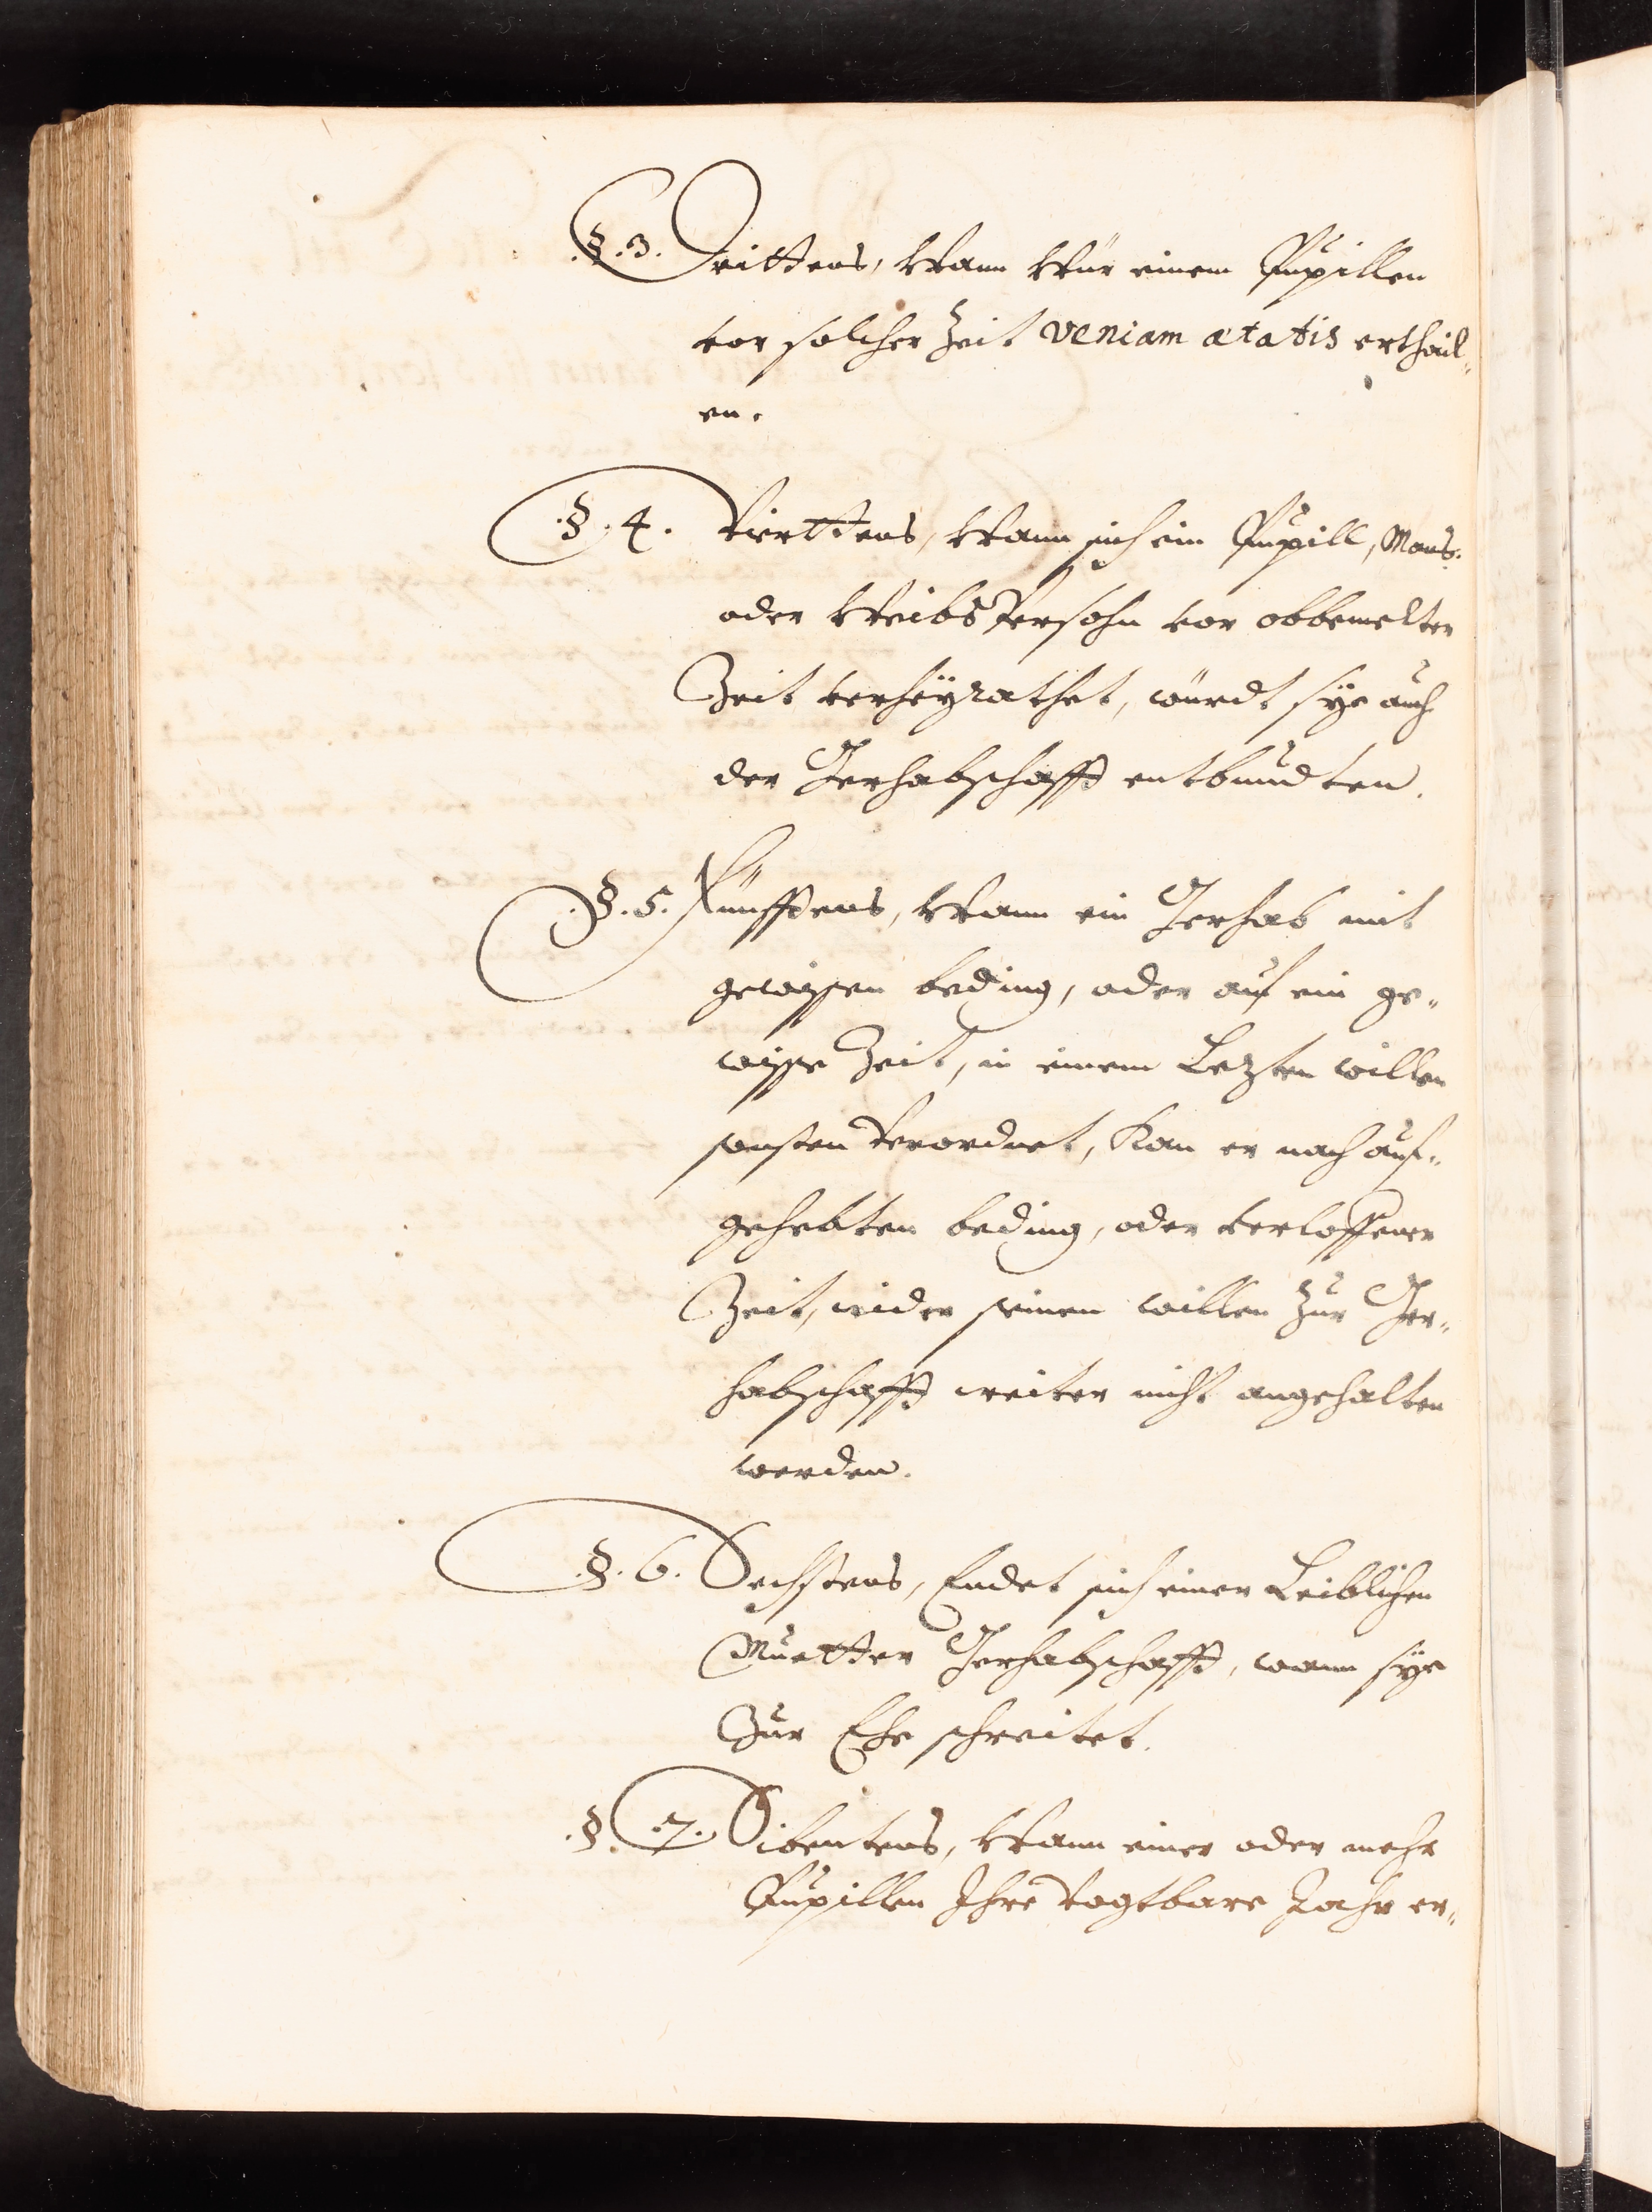 .§.3. Drittens, Wann Wür einem Pupillen
vor solcher Zeit veniam ætatis erthail„
en.
.§.4. Vierttens, Wann sich ein Pupill, Mans:
oder Weibs Persohn vor obbemelter
Zeit verheÿrathet, würdt sÿe auch
der Gerhabschafft entbundten.
.§.5. Fünfftens, Wann ein Gerhab mit
gewissen beding, oder auf ein ge„
wisse Zeit, in einem Lezten willen
sonsten Verordnet, Kan er nach auf„
gehebten beding, oder verloffener
Zeit, wider seinen willen zur Ger„
habschafft weiter nicht angehalten
werden.
.§.6. Sechstens, Endet sich einer Leiblichen
Muetter Gerhabschafft, wann sÿe
Zur Ehe schreitet.
.§.7. Sibentens, Wann einer oder mehr
Pupillen Ihre Vogtbare Jahr er„